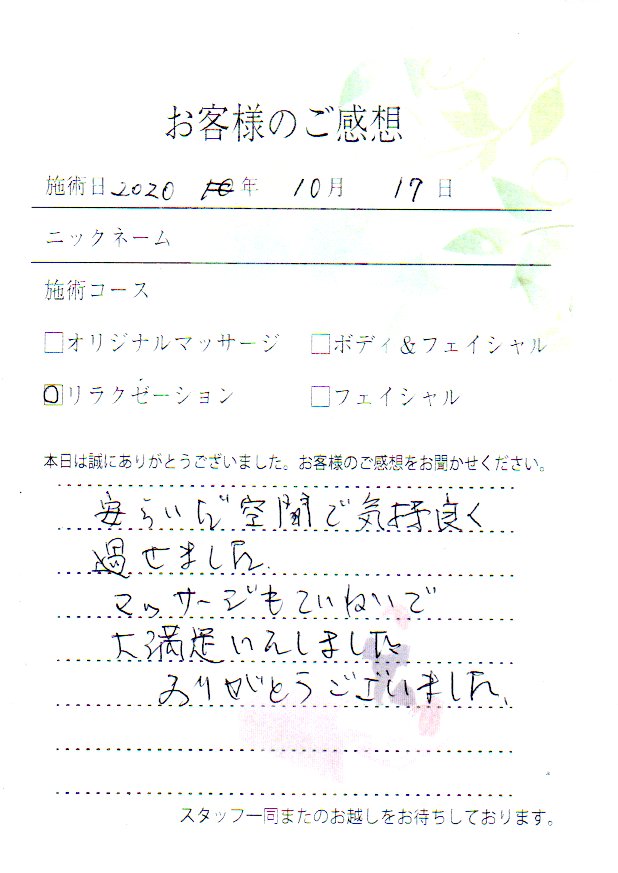 お客様のご感想
施術日 2020 年 10月 17日
ニックネーム
施術コース
□オリジナルマッサージ □ボディ&フェイシャル
□リラクゼーション □フェイシャル
本日は誠にありがとうございました。お客様のご感想をお聞かせください。
安らいだ空間で気持良く
過せました。
マッサージもていねいで
大満足いたしました
ありがとうございました。
スタッフ一同またのお越しをお待ちしております。